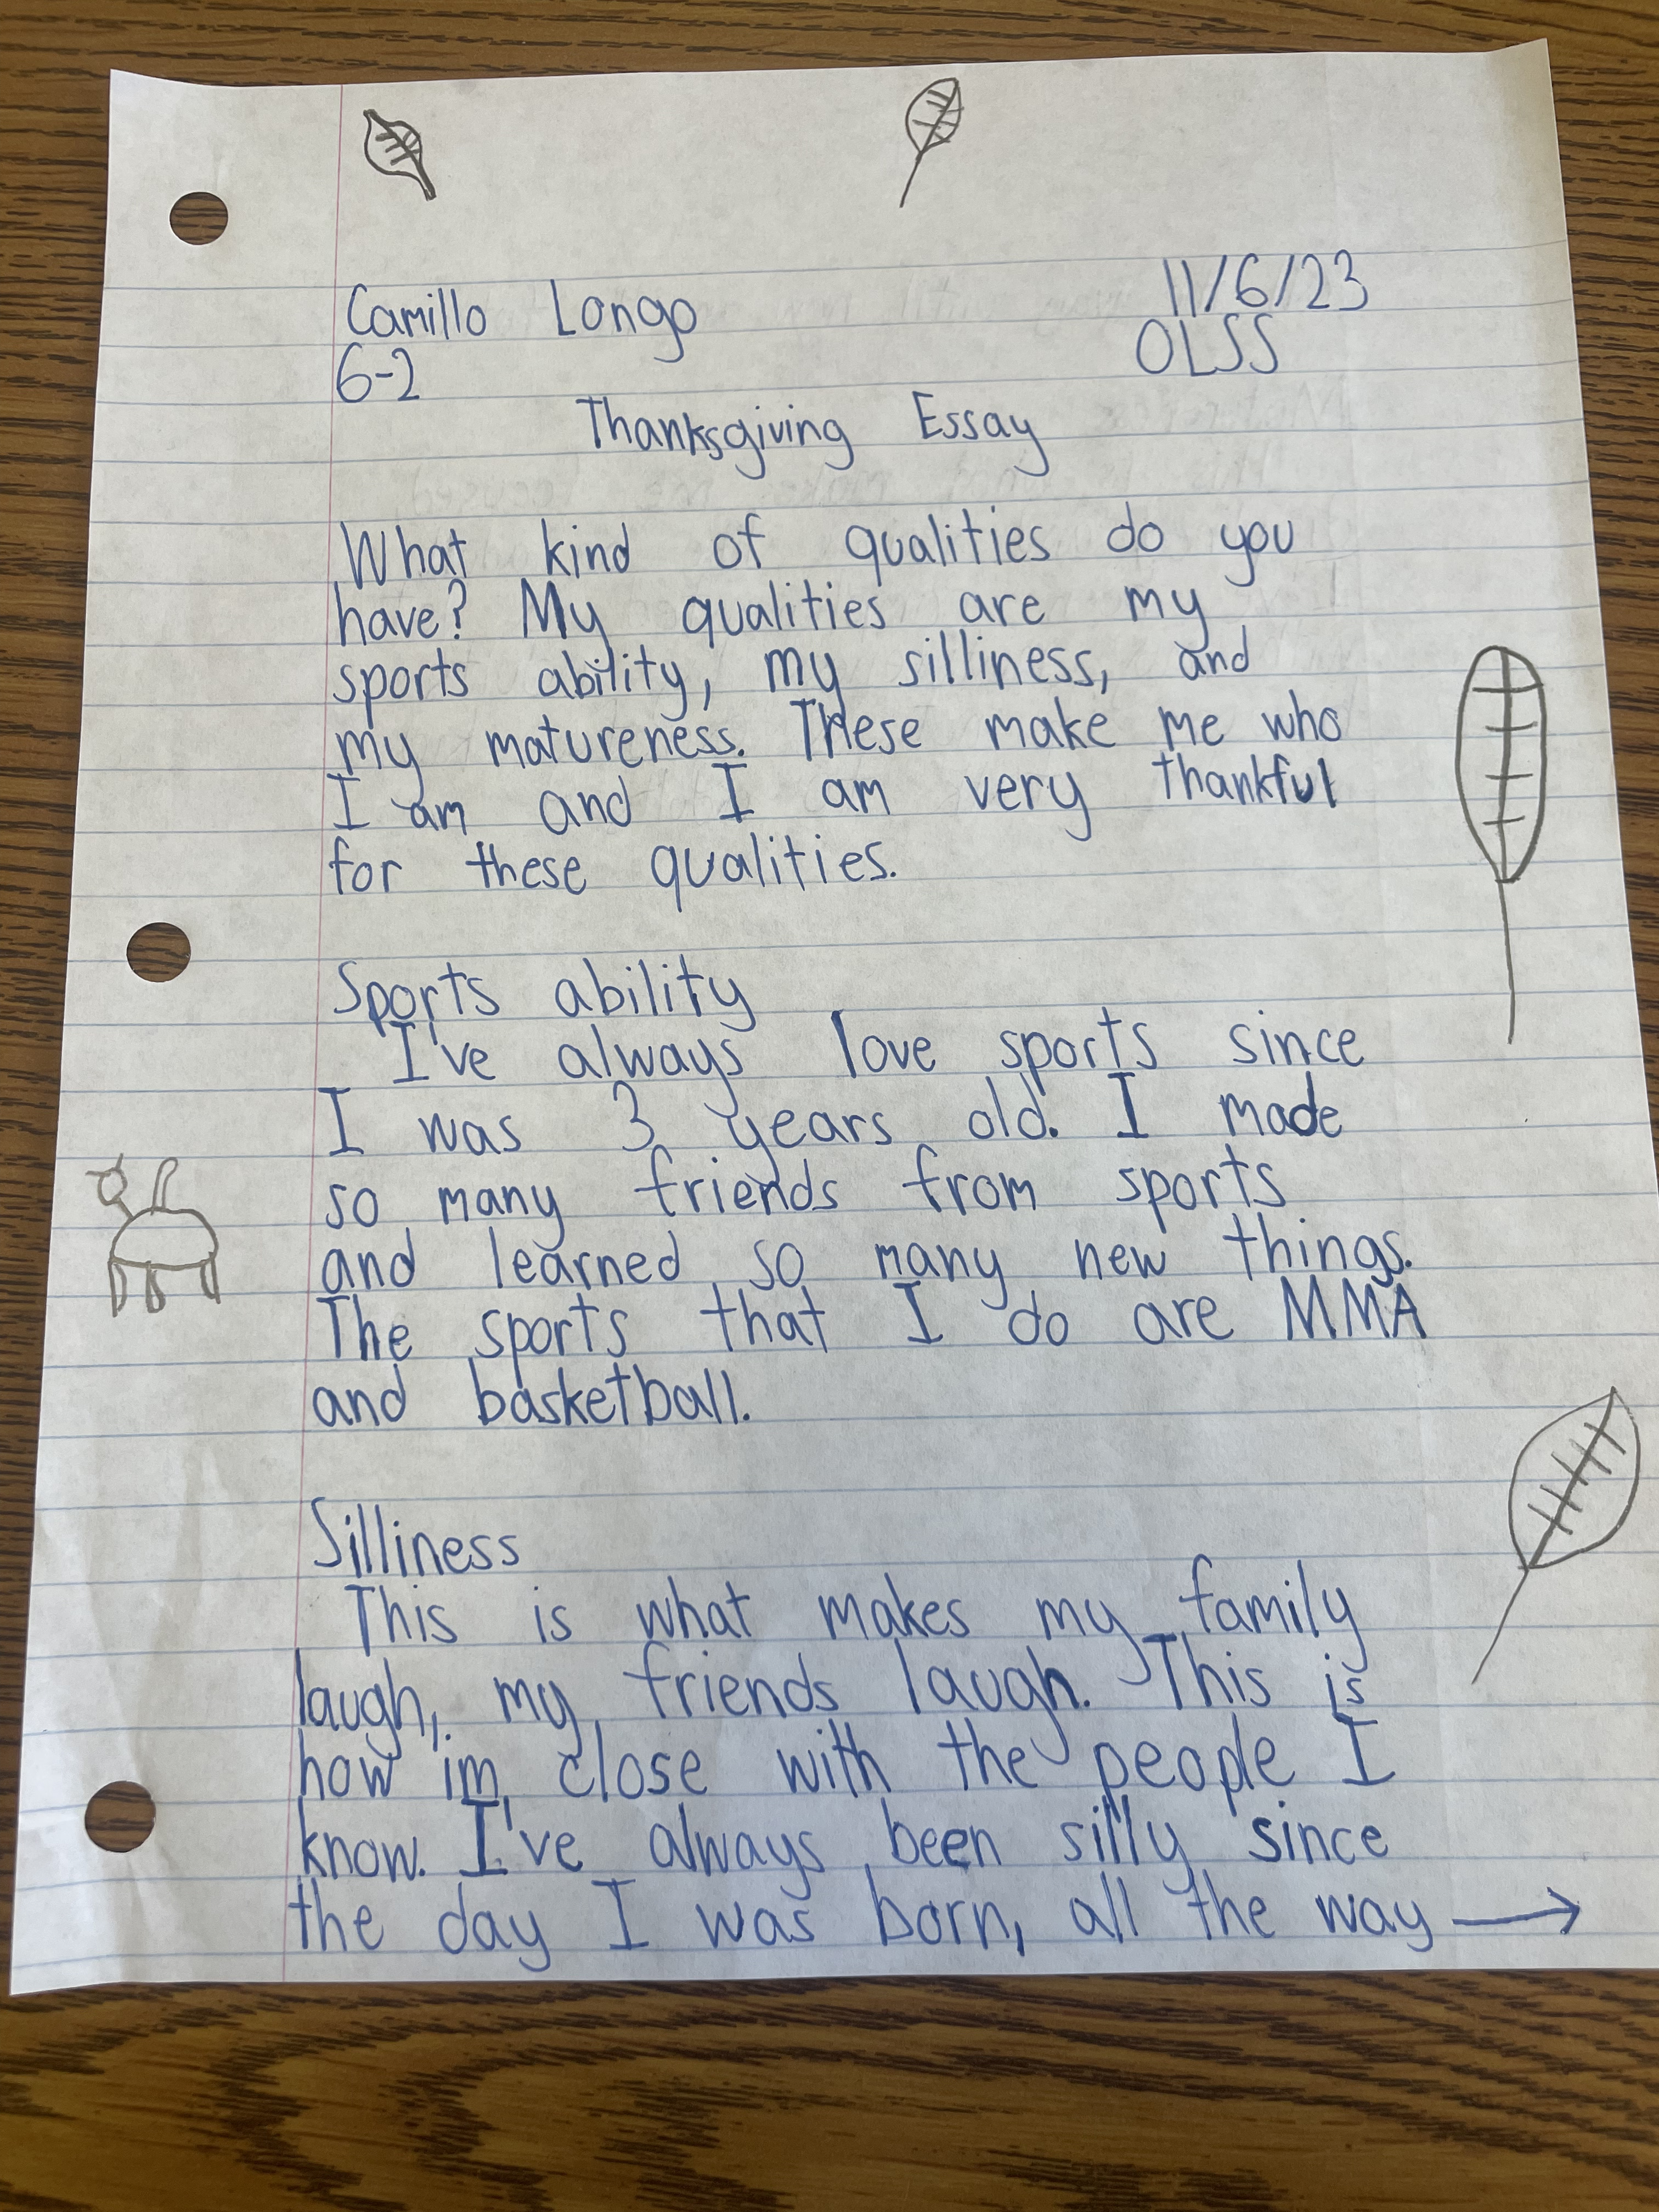 Camillo Longo 11/6/23
6-2 OLSS
Thanksgiving Essay
What kind of qualities do you
have? My qualities are my
sports ability, my silliness, and
my matureness. These make me who
I am and I am very thankful
for these qualities.
Sports ability
I've always love sports since
I was 3 years old. I made
so many friends from sports
and learned so many new things.
The sports that I do are MMA
and basketball.
Silliness
This is what makes my family
laugh, my friends laugh. This is
how im close with the people I
know. I've always been silly since
the day I was born, all the way →